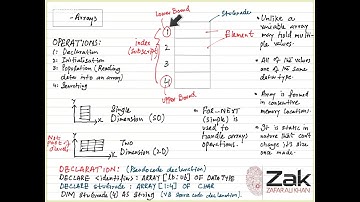 - Arrays
OPERATIONS:
1: Declaration
2: Initialization
3: Population (Reading
data into an array)
4: Searching
Lower Bound
index
(Subscript)
1
2
3
4
Upper Bound
StuGrade
Element
- Unlike a
variable array
may hold multi-
ple values.
- All of the values
are of the same
data type.
- Array is formed
in consecutive
memory locations.
- It is static in
nature that can't
change its size
once made.
Y
X
Single
Dimension (1D)
Not
part of
Y
X
TWO
Dimension (2-D)
- FOR-NEXT
(simple) is
used to
handle arrays
operations.
DECLARATION: (Pseudocode declaration)
DECLARE <identifier>: ARRAY [LB:UB] OF DATATYPE
DECLARE stuGrade: ARRAY [1:4] OF CHAR
DIM StuGrade (4) As String (VB same code declaration)
Zak
ZAFAR ALI KHAN